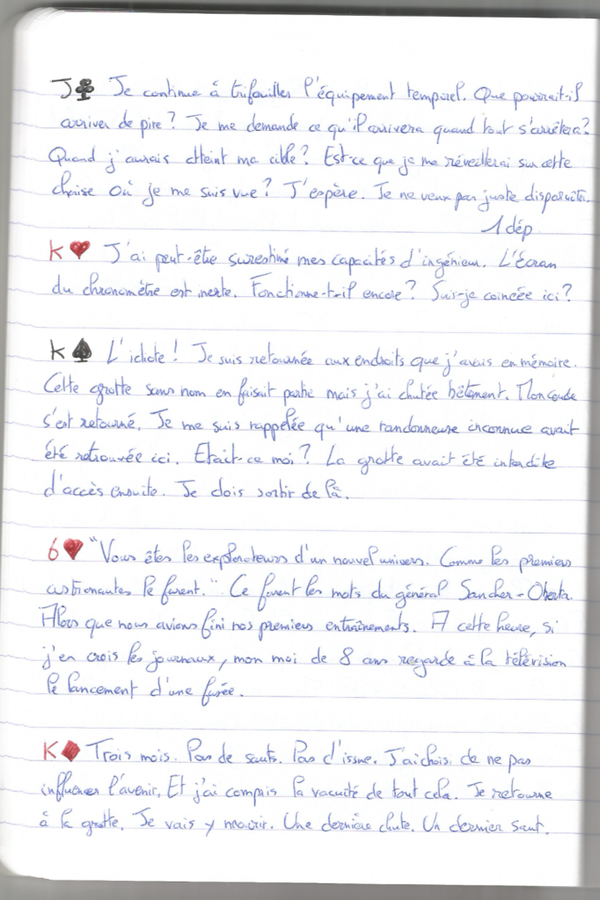 J♣ Je continue à trifouiller l'équipement temporel. Que pourrait-il
arriver de pire ? Je me demande ce qu'il arrivera quand tout s'arrêtera ?
Quand j'aurais atteint ma cible ? Est-ce que je me réveillerai sur cette
chaise où je me suis vue ? J'espère. Je ne veux pas juste disparaître.
1 dép
K♥ J'ai peut-être surestimé mes capacités d'ingénieur. L'Écran
du chronomètre est inerte. Fonctionne-t-il encore ? Suis-je coincée ici ?
K♠ L'idiote ! Je suis retournée aux endroits que j'avais en mémoire.
Cette grotte sans nom en faisait partie mais j'ai chutée bêtement. Mon coude
s'est retourné. Je me suis rappelée qu'une randonneuse inconnue avait
été retrouvée ici. Etait-ce moi ? La grotte avait été interdite
d'accès ensuite. Je dois sortir de là.
6♥ "Vous êtes les explorateurs d'un nouvel univers. Comme les premiers
astronautes le furent." Ce furent les mots du général Sancher-
Alors que nous avions fini nos premiers entraînements. A cette heure, si
j'en crois les journaux, mon moi de 8 ans regarde à la télévision
le lancement d'une fusée.
K♦ Trois mois. Pas de sauts. Pas d'issue. J'ai choisi de ne pas
influencer l'avenir. Et j'ai compris la vacuité de tout cela. Je retourne
à la grotte. Je vais y mourir. Une dernière chute. Un dernier saut.